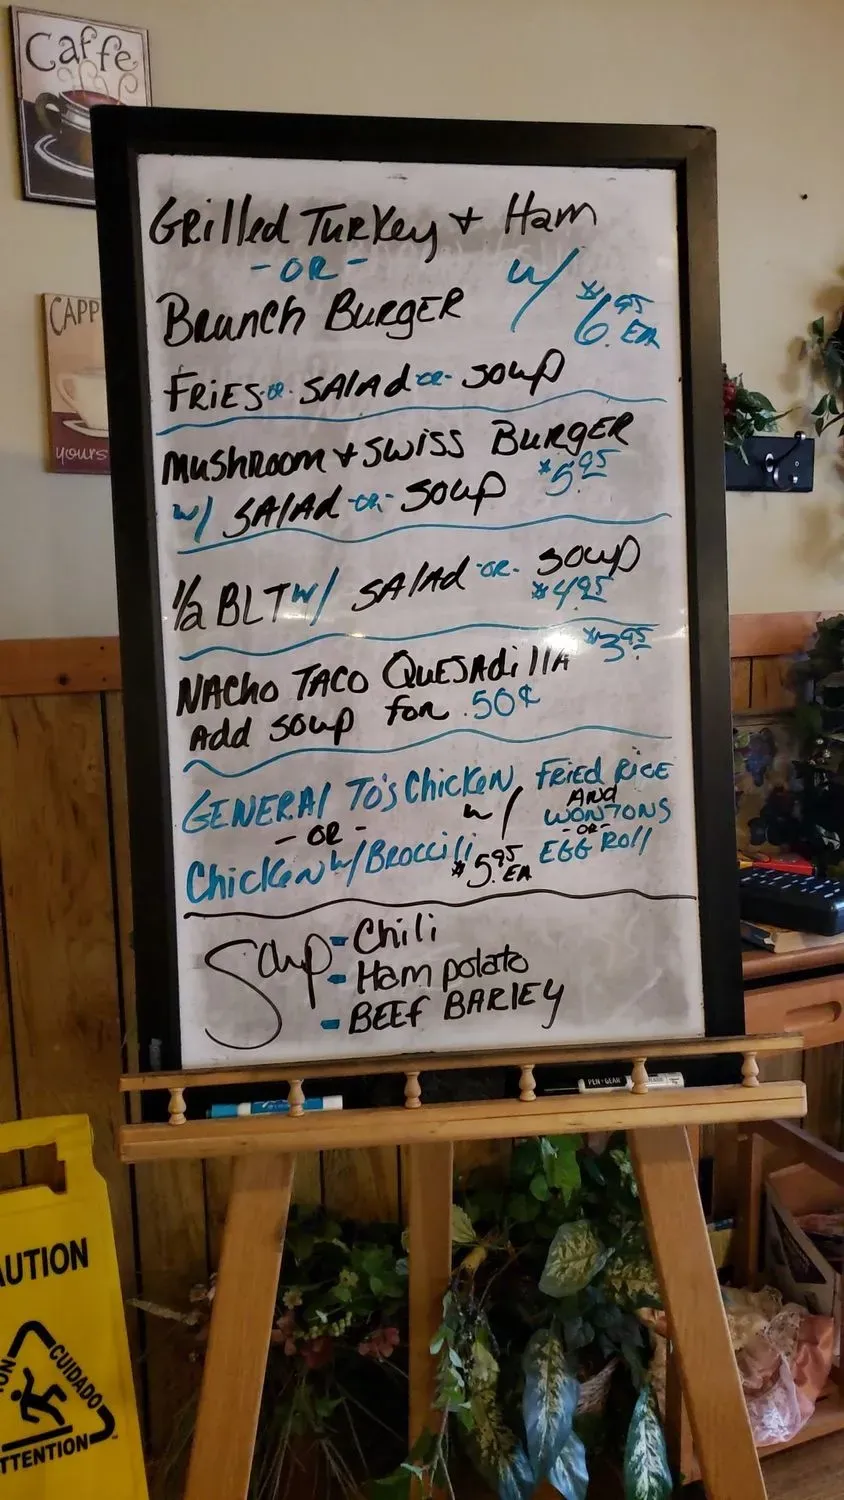 Caffe
CAPP
yours
Grilled Turkey + Ham
-OR-
Brunch Burger w/ $6.95 EA
Fries -or- Salad -or- Soup
Mushroom + Swiss Burger
w/ Salad -or- Soup $5.95
1/2 BLT w/ Salad -or- Soup
$4.95
Nacho Taco Quesadilla $3.95
Add Soup for .50¢
General To's Chicken w/ Fried Rice
-OR- AND
Wontons
-OR-
Chicken w/ Broccili $5.95 EA Egg Roll
Soup - Chili
- Ham potato
- Beef Barley
PEN+GEAR
AUTION
CUIDADO
TTENTION